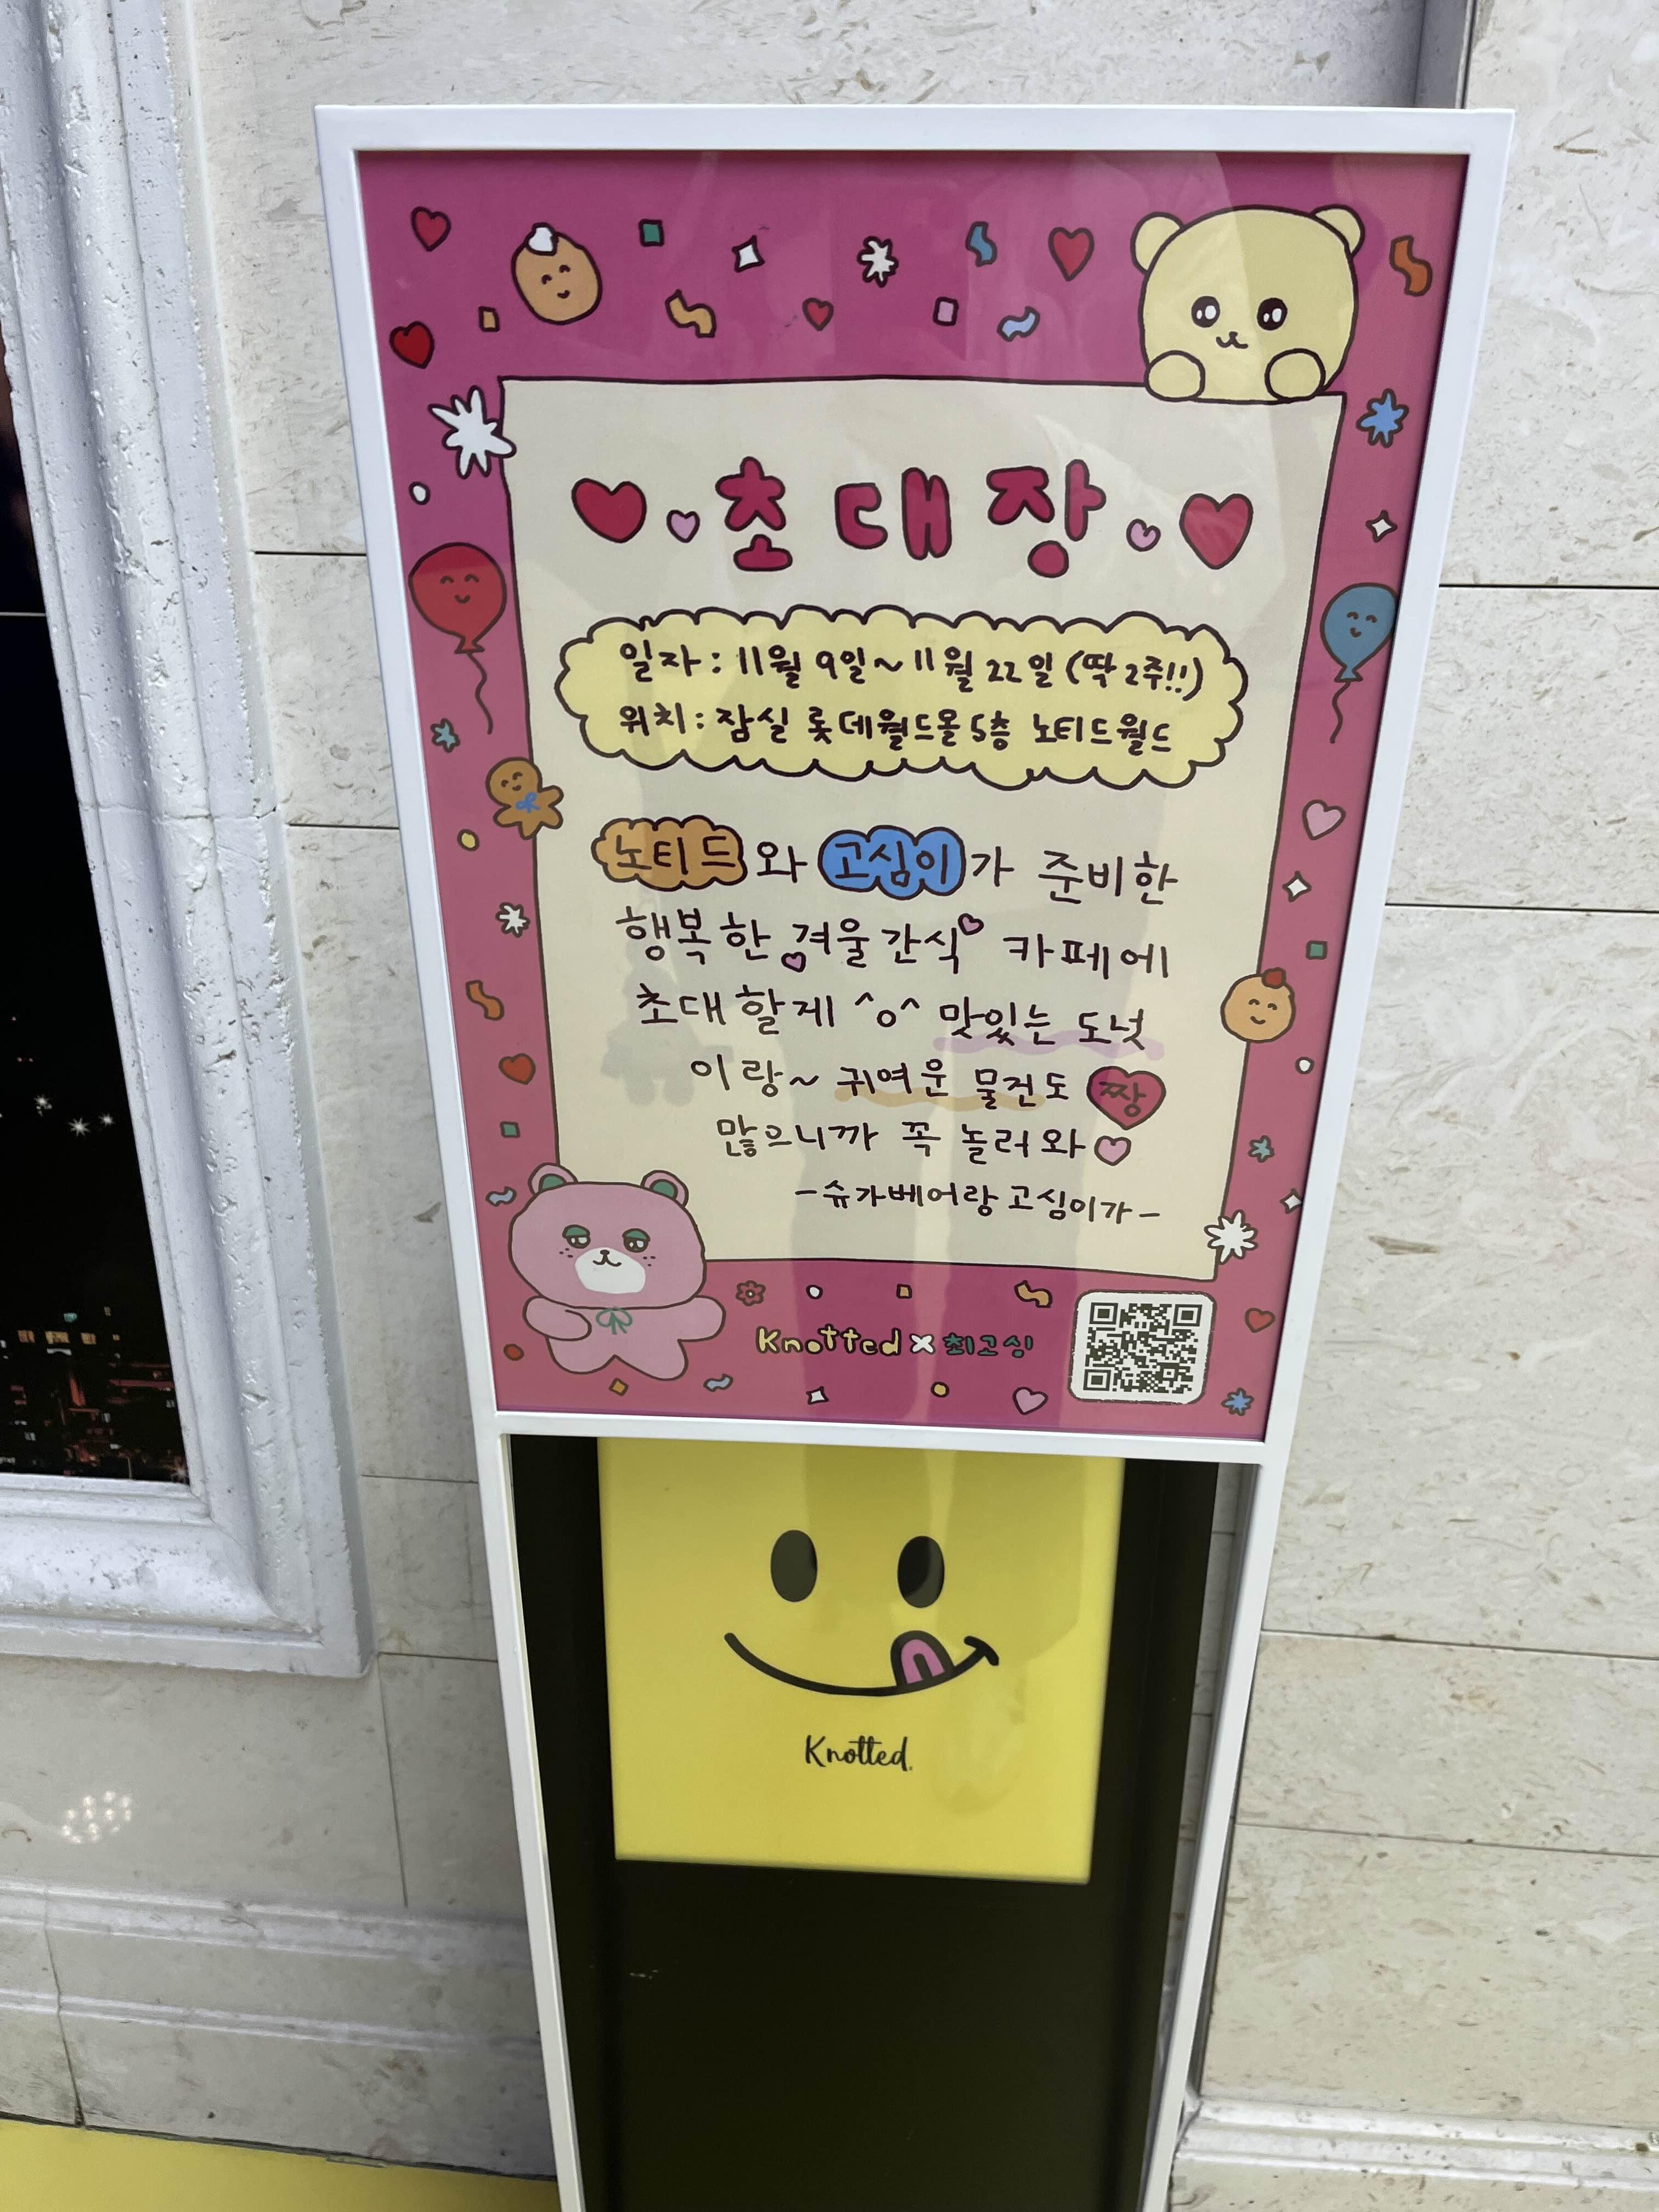 초대장
일자 : 11월 9일 ~ 11월 22일 (딱 2주!!)
위치 : 잠실 롯데월드몰 5층 노티드월드
노티드와 고심이가 준비한
행복한 겨울간식 카페에
초대할게 ^o^ 맛있는 도넛
이랑~ 귀여운 물건도 짱
많으니까 꼭 놀러와
-슈가베어랑 고심이가-
Knotted x 최고심
Knotted.